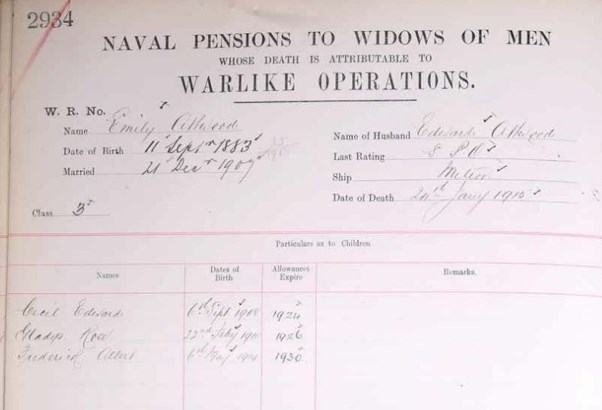 2934
NAVAL PENSIONS TO WIDOWS OF MEN
WHOSE DEATH IS ATTRIBUTABLE TO
WARLIKE OPERATIONS.
W. R. No.
Name Emily Attwood
Date of Birth 11 Septr 1883
Married 21 Decr 1907
Class 3
Name of Husband Edward Attwood
Last Rating S P O
Ship Meteor
Date of Death 24th Jany 1915
Particulars as to Children
Names Dates of Birth Allowances Expire Remarks.
Cecil Edward 6th Sept 1908 1924
Gladys Rose 22nd Feby 1910 1926
Frederick Albert 6th 1930